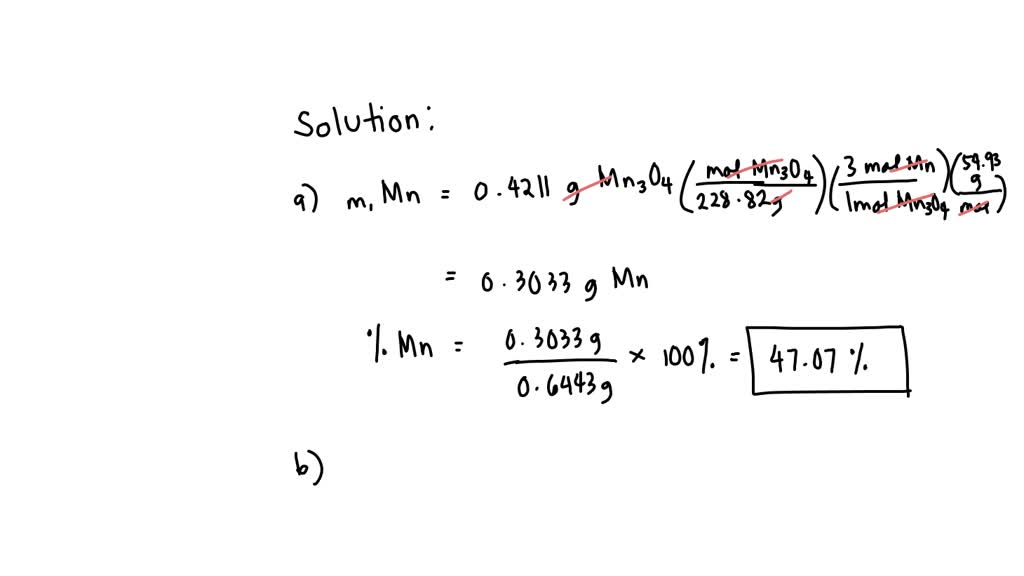 Solution:
a) m, Mn = 0.4211 g Mn₃O₄ (mol Mn₃O₄ / 228.82g) (3 mol Mn / 1 mol Mn₃O₄) (54.93 g / mol)
= 0.3033 g Mn
% Mn = 0.3033 g / 0.6443 g × 100% = 47.07 %
b)